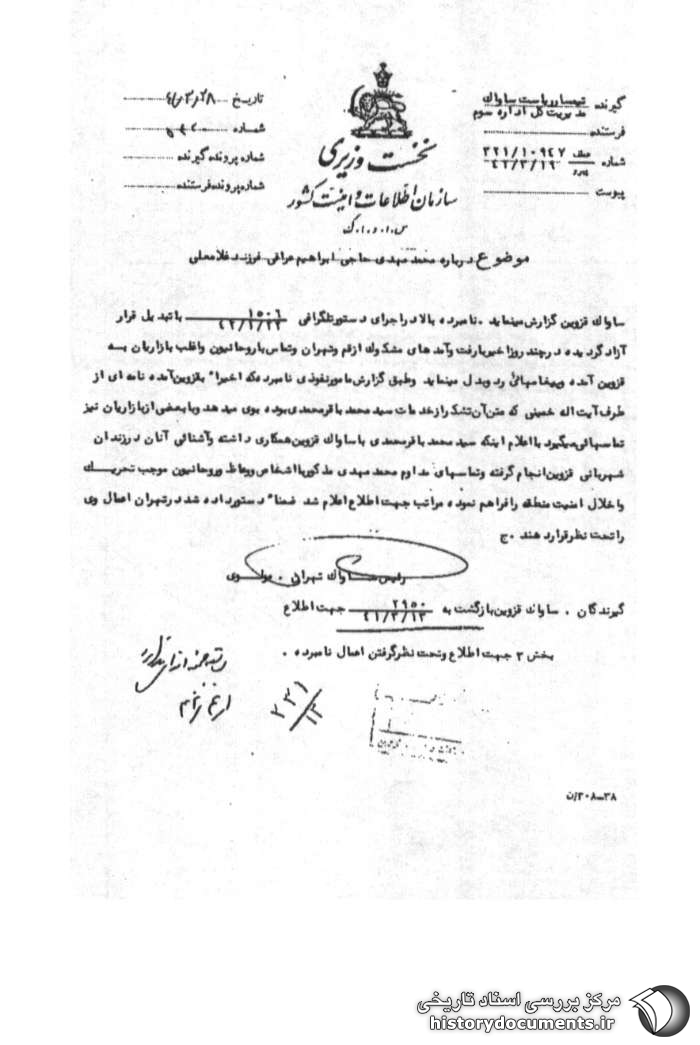 گیرنده تیمسار ریاست ساواک
مدیریت کل اداره سوم
فرستنده
شماره عطف ۳۲۱/۱۰۹۴۷
پیرو ۴۱/۳/۱۹
پیوست
نخست وزیری
سازمان اطلاعات و امنیت کشور
س.ا.و.ا.ک
تاریخ
شماره
شماره پرونده گیرنده
شماره پرونده فرستنده
موضوع درباره محمد مهدی حاجی ابراهیم عراقی فرزند غلامعلی
ساواک قزوین گزارش مینماید . نامبرده بالا در اجرای دستور تلگرافی ۱۵۰۶ با تبدیل قرار
آزاد گردیده در چند روز اخیر با رفت و آمدهای مشکوک از قم و تهران و تماس با روحانیون و اغلب بازاریان به
قزوین آمده و پیغامهائی رد و بدل مینماید و طبق گزارش مامور نفوذی نامبرده که اخیرا" بقزوین آمده نامه ای از
طرف آیت اله خمینی که متن آن تشکر از خدمات سید محمد باقر محمدی بوده بوی میدهد و با بعضی از بازاریان نیز
تماسهائی میگیرد با اعلام اینکه سید محمد باقر محمدی با ساواک قزوین همکاری داشته و آشنائی آنان در زندان
شهربانی قزوین انجام گرفته و تماسهای مداوم محمد مهدی مذکور با اشخاص و وعاظ و روحانیون موجب تحریک
و اخلال امنیت منطقه را فراهم نموده مراتب جهت اطلاع اعلام شد ضمنا" دستور داده شد در تهران اعمال وی
را تحت نظر قرار دهند . ج
رئیس ساواک تهران . مولوی
گیرندگان . ساواک قزوین بازگشت به ۲۹۵۰ جهت اطلاع
۴۱/۳/۱۳
بخش ۲ جهت اطلاع و تحت نظر گرفتن اعمال نامبرده .
۲۳۱
۱۳
۳۸-۲۰۸/ن
مرکز بررسی اسناد تاریخی
historydocuments.ir